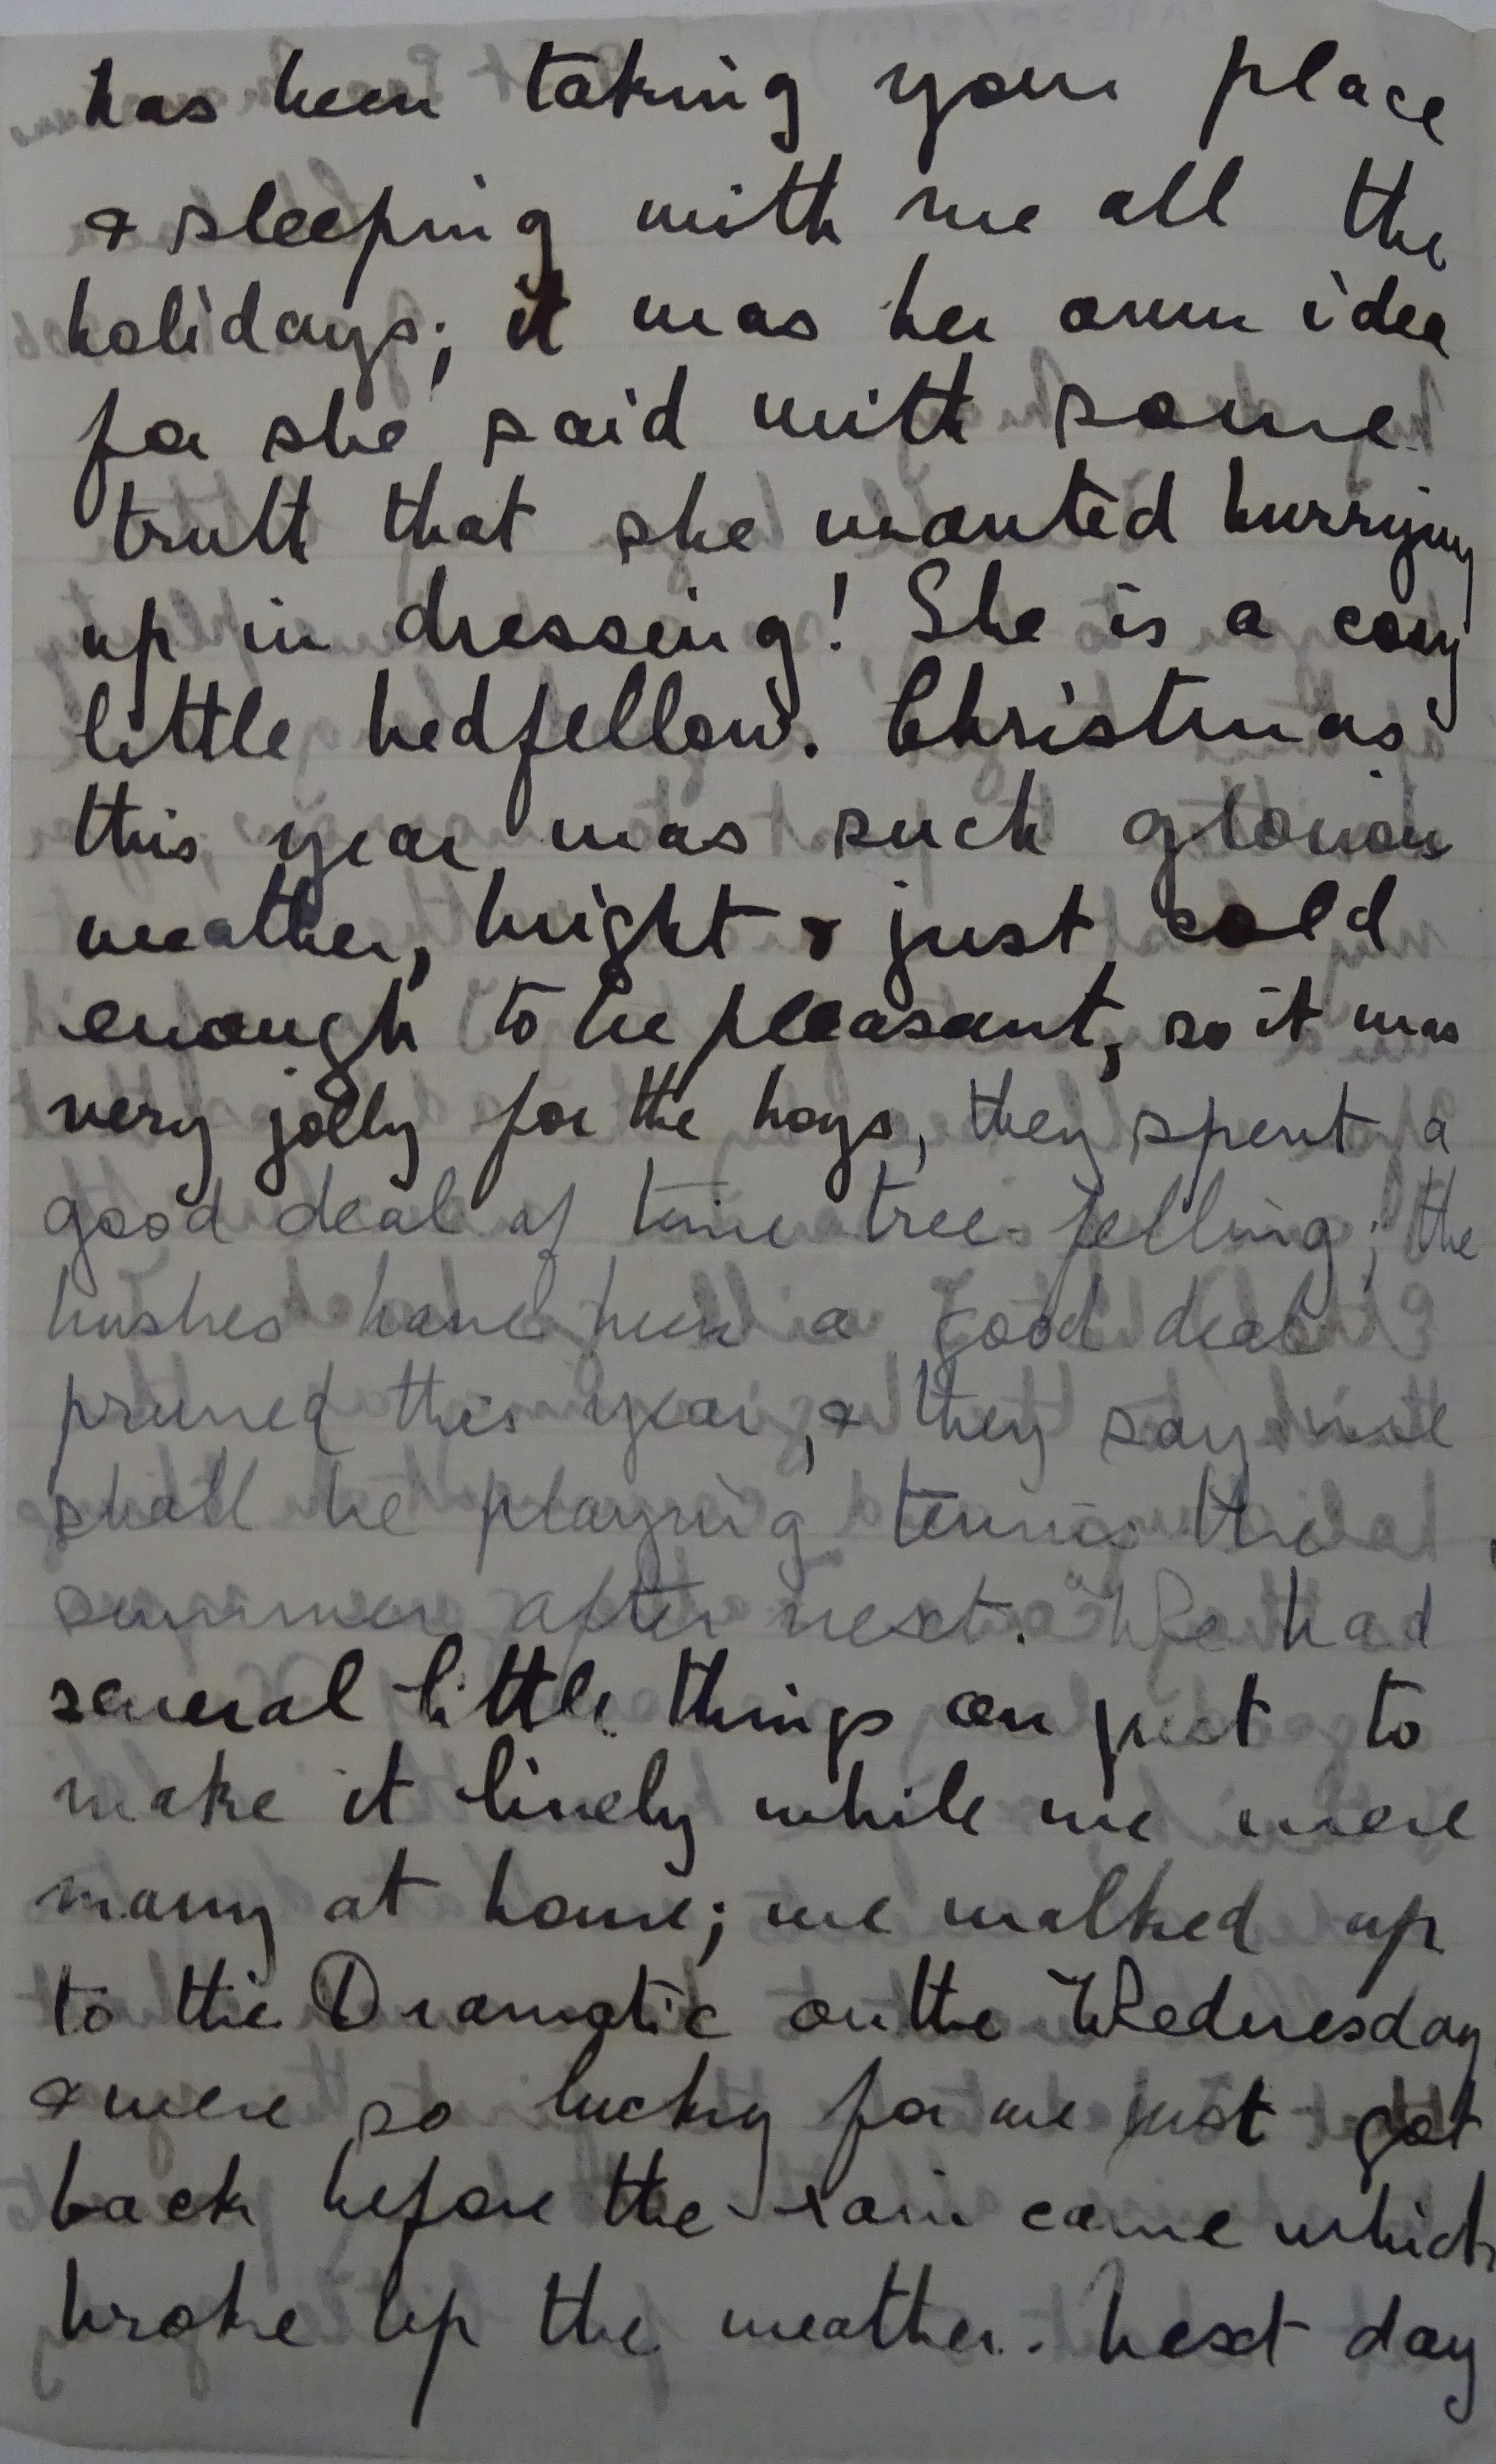 has been taking your place
& sleeping with me all the
holidays; it was her own idea
for she said with some
truth that she wanted hurrying
up in dressing! She is a cosy
little bedfellow. Christmas
this year was such glorious
weather, bright & just cold
enough to be pleasant, so it was
very jolly for the boys, they spent a
good deal of time tree-felling; the
bushes have been a good deal
pruned this year, & they say we
shall be playing tennis the
summer after next. We had
several little things on just to
make it lively while we were
many at home; we walked up
to the Dramatic on the Wednesday
& were so lucky for we just got
back before the rain came which
broke up the weather. Next day